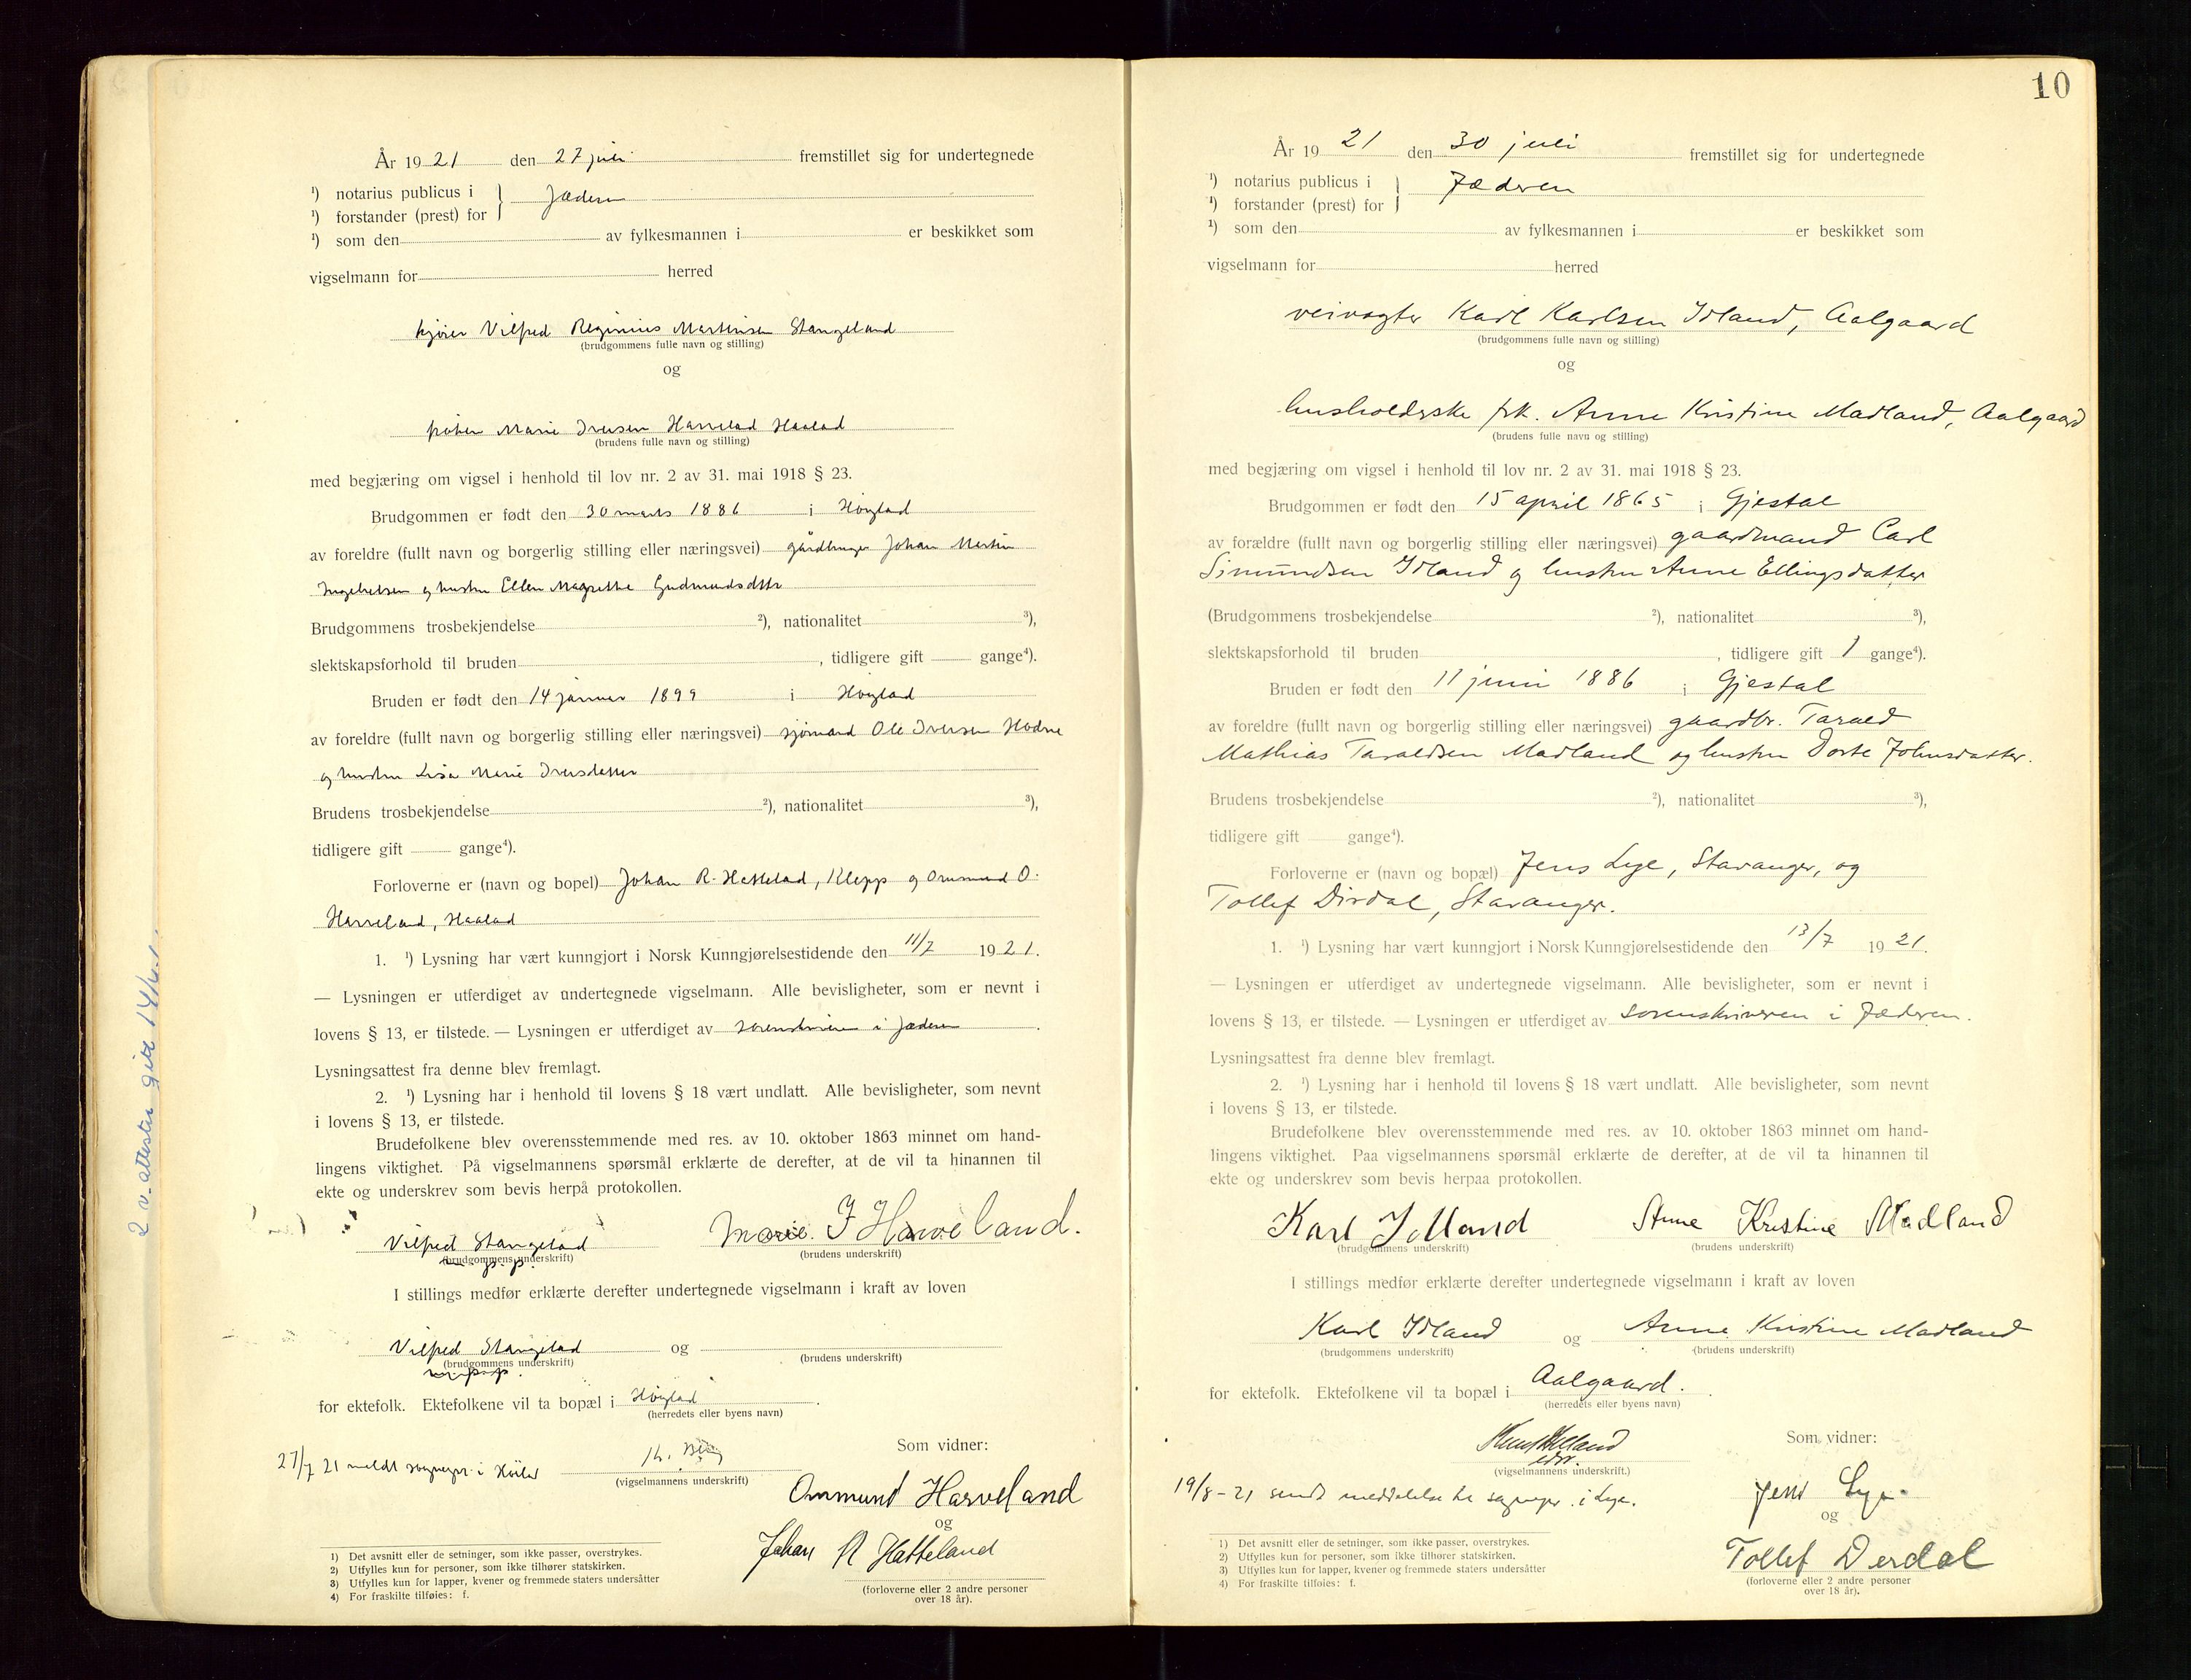 År 19 21 den 27 juli fremstillet sig for undertegnede
¹) notarius publicus i } Jæderen
¹) forstander (prest) for
¹) som den av fylkesmannen i er beskikket som
vigselmann for herred
Vilfred Martinsen Stangeland
(brudgommens fulle navn og stilling)
og
frøken Marie Iversen Harveland Haaland
(brudens fulle navn og stilling)
med begjæring om vigsel i henhold til lov nr. 2 av 31. mai 1918 § 23.
Brudgommen er født den 30 marts 1886 i Høyland
av foreldre (fullt navn og borgerlig stilling eller næringsvei) gårdbruger Johan Martin
Ingebretsen og hustru Ellen Magrethe Gudmundsdttr
Brudgommens trosbekjendelse ²), nationalitet ³),
slektskapsforhold til bruden , tidligere gift gange⁴).
Bruden er født den 14 januar 1899 i Høyland
av foreldre (fullt navn og borgerlig stilling eller næringsvei) sjømand Ole Iversen Hodne
og hustru Lisa Marie Iversdatter
Brudens trosbekjendelse ²), nationalitet ³),
tidligere gift gange⁴).
Forloverne er (navn og bopel) Johan R. Hatteland, Klepp og Ommund O.
Harveland, Haaland
1. ¹) Lysning har vært kunngjort i Norsk Kunngjørelsestidende den 11/7 19 21.
— Lysningen er utferdiget av undertegnede vigselmann. Alle bevisligheter, som er nevnt i
lovens § 13, er tilstede. — Lysningen er utferdiget av sorenskriveren i Jæderen.
Lysningsattest fra denne blev fremlagt.
2. ¹) Lysning har i henhold til lovens § 18 vært undlatt. Alle bevisligheter, som nevnt
i lovens § 13, er tilstede.
Brudefolkene blev overensstemmende med res. av 10. oktober 1863 minnet om hand-
lingens viktighet. På vigselmannens spørsmål erklærte de derefter, at de vil ta hinannen til
ekte og underskrev som bevis herpå protokollen.
Vilfred Stangeland Marie I Harveland.
(brudgommens underskrift) (brudens underskrift)
I stillings medfør erklærte derefter undertegnede vigselmann i kraft av loven
Vilfred Stangeland og
(brudgommens underskrift) (brudens underskrift)
for ektefolk. Ektefolkene vil ta bopæl i Høyland.
(herredets eller byens navn)
Som vidner:
27/7 21 meldt sogneprs. i
(vigselmannens underskrift)
Ommund Harveland
og
Johan R Hatteland
(forloverne eller 2 andre personer
over 18 år).
1) Det avsnitt eller de setninger, som ikke passer, overstrykes.
2) Utfylles kun for personer, som ikke tilhører statskirken.
3) Utfylles kun for lapper, kvener og fremmede staters undersåtter
4) For fraskilte tilføies: f.
2 v. attester git 14/6
10
År 19 21 den 30 juli fremstillet sig for undertegnede
¹) notarius publicus i } Jæderen
¹) forstander (prest) for
¹) som den av fylkesmannen i er beskikket som
vigselmann for herred
veivogter Karl Karlsen Idland, Aalgaard
(brudgommens fulle navn og stilling)
og
husholderske frk. Anne Kristine Madland, Aalgaard
(brudens fulle navn og stilling)
med begjæring om vigsel i henhold til lov nr. 2 av 31. mai 1918 § 23.
Brudgommen er født den 15 april 1865 i Gjestal
av forældre (fullt navn og borgerlig stilling eller næringsvei) gaardmand Carl
Simundsen Idland og hustru Anne Ellingsdatter
(Brudgommens trosbekjendelse ²), nationalitet ³),
slektskapsforhold til bruden , tidligere gift 1 gange⁴).
Bruden er født den 11 juni 1886 i Gjestal
av foreldre (fullt navn og borgerlig stilling eller næringsvei) gaardbr. Tarald
Mathias Taraldsen Madland og hustru Dorte Johnsdatter.
Brudens trosbekjendelse ²), nationalitet ³),
tidligere gift gange⁴).
Forloverne er (navn og bopæl) Jens Lye, Stavanger, og
Tollef Dirdal, Stavanger.
1. ¹) Lysning har vært kunngjort i Norsk Kunngjørelsestidende den 13/7 19 21.
— Lysningen er utferdiget av undertegnede vigselmann. Alle bevisligheter, som er nevnt i
lovens § 13, er tilstede. — Lysningen er utferdiget av sorenskriveren i Jæderen.
Lysningsattest fra denne blev fremlagt.
2. ¹) Lysning har i henhold til lovens § 18 vært undlatt. Alle bevisligheter, som nevnt
i lovens § 13, er tilstede.
Brudefolkene blev overensstemmende med res. av 10. oktober 1863 minnet om hand-
lingens viktighet. Paa vigselmannens spørsmål erklærte de derefter, at de vil ta hinannen til
ekte og underskrev som bevis herpaa protokollen.
Karl Idland Anne Kristine Madland
(brudgommens underskrift) (brudens underskrift)
I stillings medfør erklærte derefter undertegnede vigselmann i kraft av loven
Karl Idland og Anne Kristine Madland
(brudgommens underskrift) (brudens underskrift)
for ektefolk. Ektefolkene vil ta bopæl i Aalgaard.
(herredets eller byens navn)
Som vidner:
(vigselmannens underskrift.)
19/8-21 sendt meddelelse til sogneprs. i Lye.
Jens Lye
og
Tollef Derdal
(forloverne eller 2 andre personer
over 18 år).
1) Det avsnitt eller de setninger, som ikke passer, overstrykes.
2) Utfylles kun for personer, som ikke tilhører statskirken.
3) Utfylles kun for lapper, kvener og fremmede staters undersåtter
4) For fraskilte tilføies: f.